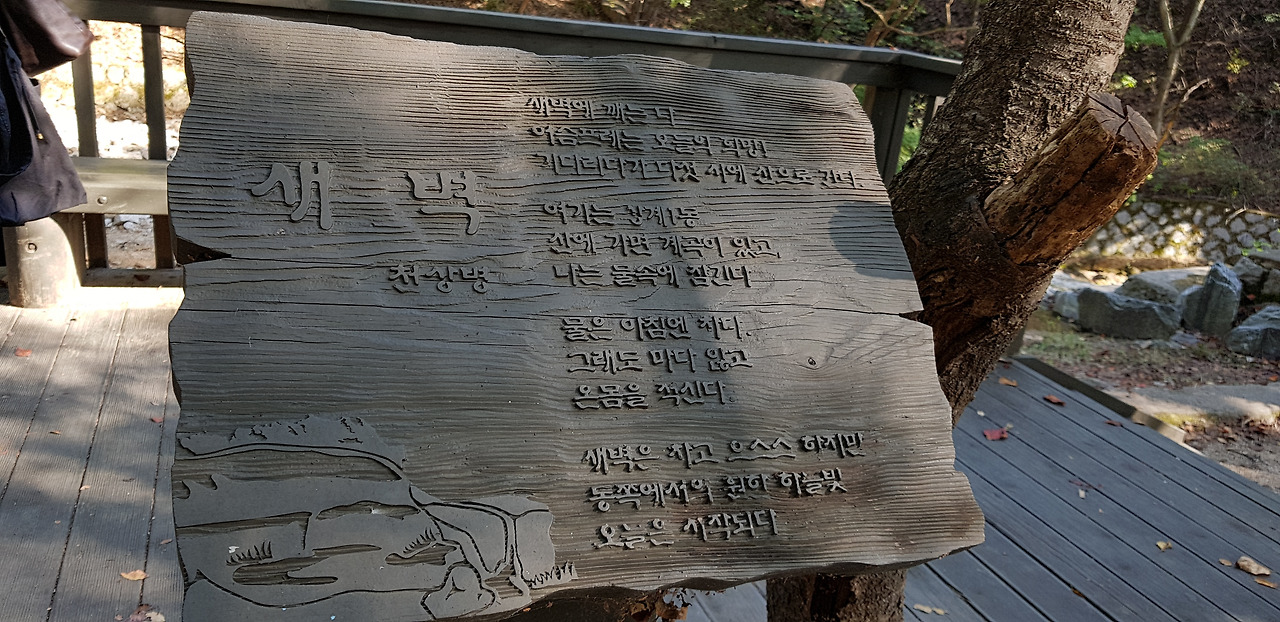 새벽
천상병
새벽에 깨는 나
어슴프레는 오늘의 희망!
기다리다가 다섯 시에 산으로 간다.
여기는 상계1동
산에 가면 계곡이 있고
나는 물속에 잠긴다
물은 아침엔 차다.
그래도 마다 않고
온몸을 적신다.
새벽은 차고 으스스 하지만
동쪽에서의 훤한 하늘빛
오늘은 시작되다